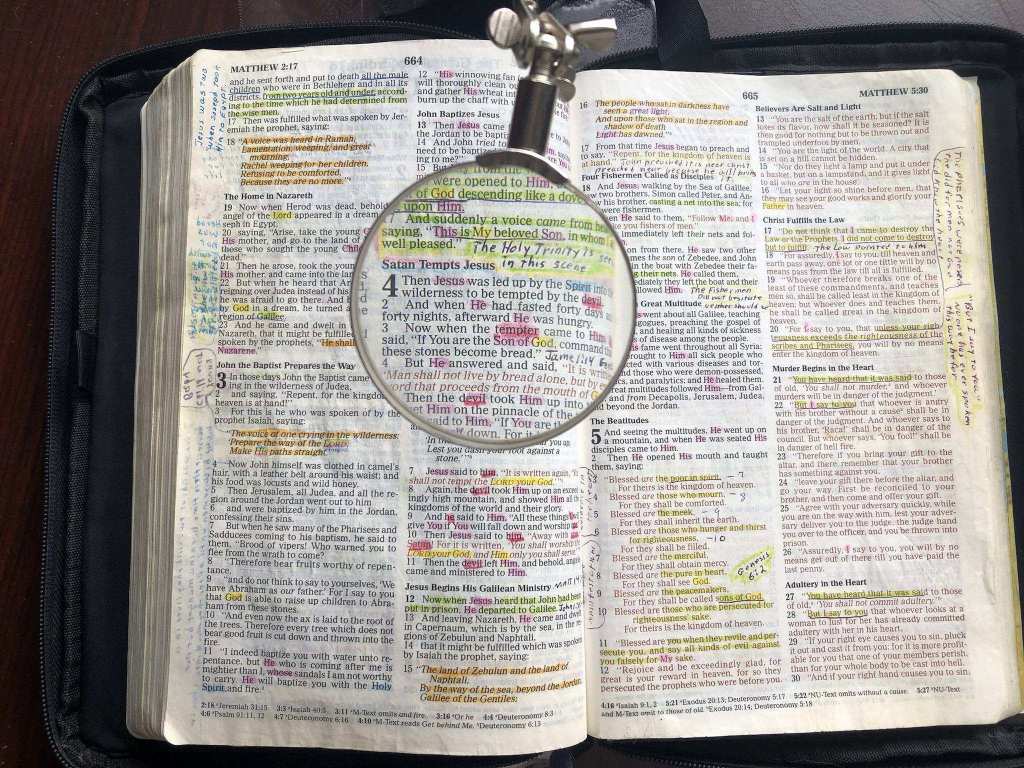 MATTHEW 2:17
664
and he sent forth and put to death all the male
children who were in Bethlehem and in all its
districts, from two years old and under, accord-
ing to the time which he had determined from
the wise men.
17 Then was fulfilled what was spoken by Jer-
emiah the prophet, saying:
18 "A voice was heard in Ramah,
Lamentation, weeping, and great
mourning,
Rachel weeping for her children,
Refusing to be comforted,
Because they are no more."
The Home in Nazareth
19 Now when Herod was dead, behold
angel of the Lord appeared in a dream
seph in Egypt,
20 saying, "Arise, take the young C
His mother, and go to the land of
those who sought the young Chi
dead."
21 Then he arose, took the young
mother, and came into the lan
22 But when he heard that Ar
reigning over Judea instead of his
he was afraid to go there. And b
by God in a dream, he turned a
region of Galilee.
23 And he came and dwelt in
Nazareth, that it might be fulfilled
spoken by the prophets, "He shall
Nazarene."
John the Baptist Prepares the Way
3 In those days John the Baptist came
ing in the wilderness of Judea,
2 and saying, "Repent, for the kingdom
heaven is at hand!"
3 For this is he who was spoken of by the
prophet Isaiah, saying:
"The voice of one crying in the wilderness:
Prepare the way of the LORD;
Make His paths straight."
4 Now John himself was clothed in camel's
hair, with a leather belt around his waist; and
his food was locusts and wild honey.
5 Then Jerusalem, all Judea, and all the re-
gion around the Jordan went out to him
6 and were baptized by him in the Jordan,
confessing their sins.
7 But when he saw many of the Pharisees and
Sadducees coming to his baptism, he said to
them, "Brood of vipers! Who warned you to
flee from the wrath to come?
8 "Therefore bear fruits worthy of repen-
tance,
9 "and do not think to say to yourselves, 'We
have Abraham as our father.' For I say to you
that God is able to raise up children to Abra-
ham from these stones.
10 "And even now the ax is laid to the root of
the trees. Therefore every tree which does not
bear good fruit is cut down and thrown into the
fire.
11 "I indeed baptize you with water unto re-
pentance, but He who is coming after me is
mightier than I, whose sandals I am not worthy
to carry. He will baptize you with the Holy
Spirit and fire.
12 "His winnowing fan
will thoroughly clean ou
and gather His wheat int
burn up the chaff with u
John Baptizes Jesus
13 Then Jesus came
the Jordan to be baptiz
14 And John tried to
need to be baptized
ing to me?"
were opened to Him,
of God descending like a dove
upon Him.
And suddenly a voice came from he
saying, "This is My beloved Son, in whom I
well pleased." The Holy Trinity is se
in this scene
Satan Tempts Jesus
4 Then Jesus was led up by the Spirit into
wilderness to be tempted by the devil.
2 And when He had fasted forty days a
forty nights, afterward He was hungry.
3 Now when the tempter came to Him
said, "If You are the Son of God, command
these stones become bread."
4 But He answered and said, "It is writ
'Man shall not live by bread alone, but by e
word that proceeds from the mouth of G
Then the devil took Him up into
et Him on the pinnacle of the
said to Him, "If You are th
down. For it
'In the
Lest you dash your foot against a
stone.'"
7 Jesus said to him, "It is written again, 'Y
shall not tempt the LORD your God.'"
8 Again, the devil took Him up on an excee
ingly high mountain, and showed Him all
kingdoms of the world and their glory.
9 And he said to Him, "All these things
give You if You will fall down and worship
10 Then Jesus said to him, "Away with
Satan! For it is written, 'You shall worship t
LORD your God, and Him only you shall serve
11 Then the devil left Him, and behold, ange
came and ministered to Him.
Jesus Begins His Galilean Ministry
12 Now when Jesus heard that John had been
put in prison, He departed to Galilee.
13 And leaving Nazareth, He came and dw
in Capernaum, which is by the sea, in the re
gions of Zebulun and Naphtali,
14 that it might be fulfilled which was spoken
by Isaiah the prophet, saying:
15 "The land of Zebulun and the land of
Naphtali,
By the way of the sea, beyond the Jordan,
Galilee of the Gentiles:
2:18 Jeremiah 31:15 3:3 Isaiah 40:3 3:11 M-Text omits and fire. 3:16 Or he 4:4 Deuteronomy 8:3
4:6 Psalm 91:11, 12 4:7 Deuteronomy 6:16 4:10 M-Text reads Get behind Me. Deuteronomy 6:13
665
MATTHEW 5:30
16 The people who sat in darkness have
seen a great light,
And upon those who sat in the region and
shadow of death
Light has dawned."
17 From that time Jesus began to preach and
to say, "Repent, for the kingdom of heaven is
at hand."
Four Fishermen Called as Disciples
18 And Jesus, walking by the Sea of Galilee,
saw two brothers, Simon called Peter, and An-
his brother, casting a net into the sea; for
were fishermen.
en He said to them, "Follow Me, and I
ke you fishers of men."
immediately left their nets and fol-
on from there, He saw two other
mes the son of Zebedee, and John
in the boat with Zebedee their fa-
g their nets. He called them,
diately they left the boat and their
llowed Him.
Great Multitude
went about all Galilee, teaching
agogues, preaching the gospel of
and healing all kinds of sickness
s of disease among the people.
is fame went throughout all Syria;
rought to Him all sick people who
cted with various diseases and tor-
and those who were demon-possessed,
tics, and paralytics; and He healed them.
eat multitudes followed Him—from Gal-
and from Decapolis, Jerusalem, Judea,
beyond the Jordan.
The Beatitudes
5 And seeing the multitudes, He went up on
a mountain, and when He was seated His
disciples came to Him.
2 Then He opened His mouth and taught
them, saying:
3 "Blessed are the poor in spirit, – 7
For theirs is the kingdom of heaven.
4 Blessed are those who mourn, – 8
For they shall be comforted.
5 Blessed are the meek, – 9
For they shall inherit the earth.
6 Blessed are those who hunger and thirst
for righteousness, – 10
For they shall be filled.
7 Blessed are the merciful,
For they shall obtain mercy.
8 Blessed are the pure in heart,
For they shall see God.
9 Blessed are the peacemakers,
For they shall be called sons of God.
10 Blessed are those who are persecuted for
righteousness' sake,
For theirs is the kingdom of heaven.
Genesis
6:2
11 "Blessed are you when they revile and per-
secute you, and say all kinds of evil against
you falsely for My sake.
12 "Rejoice and be exceedingly glad, for
great is your reward in heaven, for so they
persecuted the prophets who were before you.
Believers Are Salt and Light
13 "You are the salt of the earth; but if the salt
loses its flavor, how shall it be seasoned? It is
then good for nothing but to be thrown out and
trampled underfoot by men.
14 "You are the light of the world. A city that
is set on a hill cannot be hidden.
15 "Nor do they light a lamp and put it under
a basket, but on a lampstand, and it gives light
to all who are in the house.
16 "Let your light so shine before men, that
they may see your good works and glorify your
Father in heaven.
Christ Fulfills the Law
17 "Do not think that I came to destroy the
Law or the Prophets. I did not come to destroy
but to fulfill. The Law pointed to Him
18 "For assuredly, I say to you, till heaven and
earth pass away, one jot or one tittle will by no
means pass from the law till all is fulfilled.
19 "Whoever therefore breaks one of the
least of these commandments, and teaches
men so, shall be called least in the kingdom of
heaven; but whoever does and teaches them,
he shall be called great in the kingdom of
heaven.
20 "For I say to you, that unless your righ-
teousness exceeds the righteousness of the
scribes and Pharisees, you will by no means
enter the kingdom of heaven.
Murder Begins in the Heart
21 "You have heard that it was said to those
of old, 'You shall not murder,' and whoever
murders will be in danger of the judgment.'
22 "But I say to you that whoever is angry
with his brother without a cause shall be in
danger of the judgment. And whoever says to
his brother, 'Raca!' shall be in danger of the
council. But whoever says, 'You fool!' shall be
in danger of hell fire.
23 "Therefore if you bring your gift to the
altar, and there remember that your brother
has something against you,
24 "leave your gift there before the altar, and
go your way. First be reconciled to your
brother, and then come and offer your gift.
25 "Agree with your adversary quickly, while
you are on the way with him, lest your adver-
sary deliver you to the judge, the judge hand
you over to the officer, and you be thrown into
prison.
26 "Assuredly, I say to you, you will by no
means get out of there till you have paid the
last penny.
Adultery in the Heart
27 "You have heard that it was said to those
of old, 'You shall not commit adultery.'
28 "But I say to you that whoever looks at a
woman to lust for her has already committed
adultery with her in his heart.
29 "If your right eye causes you to sin, pluck
it out and cast it from you; for it is more profit-
able for you that one of your members perish,
than for your whole body to be cast into hell.
30 "And if your right hand causes you to sin,
4:16 Isaiah 9:1, 2 5:21 Exodus 20:13; Deuteronomy 5:17 5:22 NU-Text omits without a cause. 5:27 NU-Text
and M-Text omit to those of old. Exodus 20:14; Deuteronomy 5:18